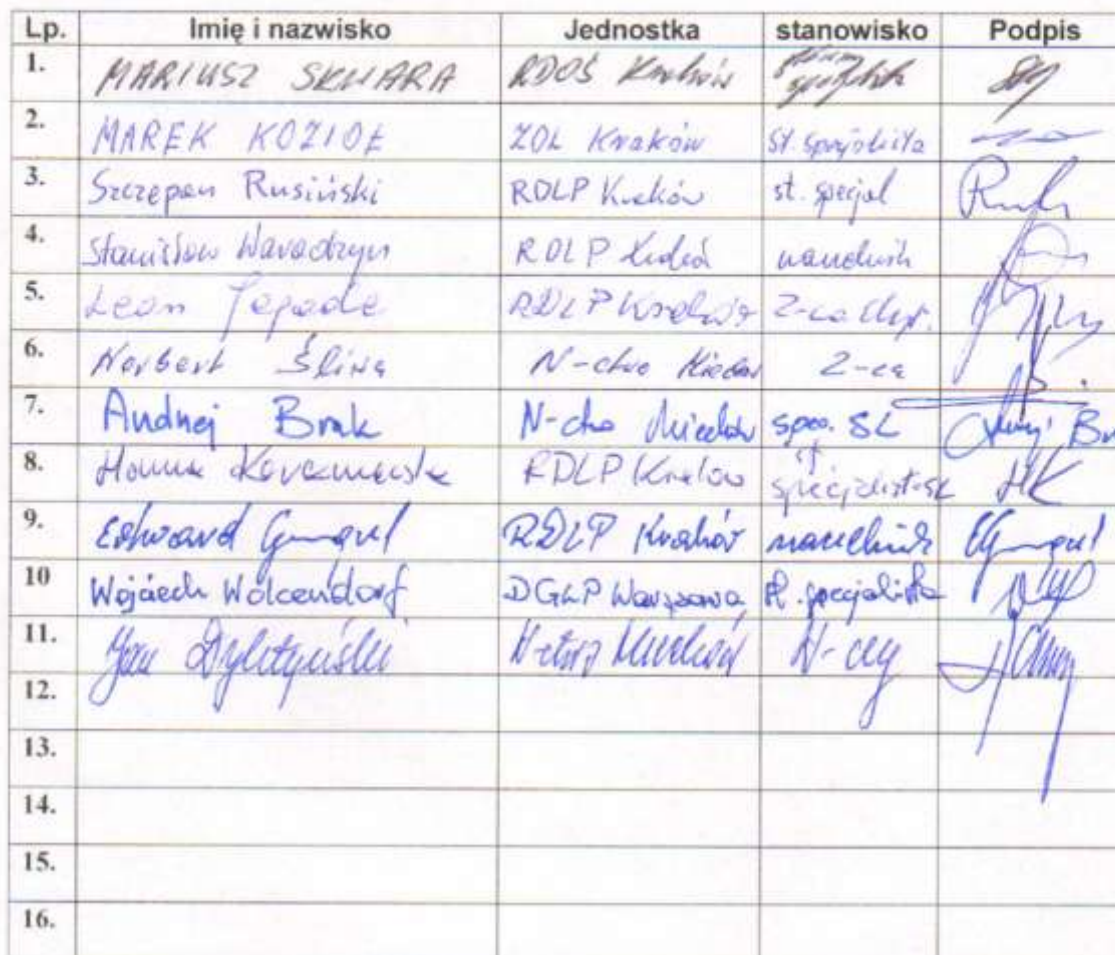 Lp. Imię i nazwisko Jednostka stanowisko Podpis
1. MARIUSZ SKWARA RDOŚ Kraków
2. MAREK KOZIOŁ ZOL Kraków st. specjalista
3. Szczepan Rusiński RDLP Kraków st. specjal
4. Stanisław RDLP Kraków naczelnik
5. Leon Jagoda RDLP Kraków Z-ca
6. Norbert Śliwa N-ctwo Miechów Z-ca
7. Andrzej Brak N-ctwo Miechów spec. SL
8. Hanna Karczmarska RDLP Kraków st specjalist. SL HK
9. Edward RDLP Kraków naczelnik
10 Wojciech Wolcendorf DGLP Warszawa st. specjalista
11. Jan N-ctwo Miechów N-czy
12.
13.
14.
15.
16.